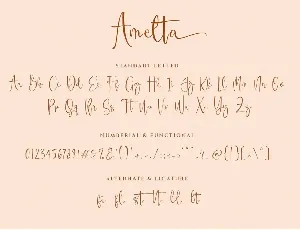 Amelta
STANDART LETTER
Aa Bb Cc Dd Ee Ff Gg Hh Ii Jj Kk Ll Mm Nn Oo
Pp Qq Rr Ss Tt Uu Vv Ww Xx Yy Zz
NUMBERIAL & FUNCTIONAL
0123456789
ALTERNATE & LIGATURE